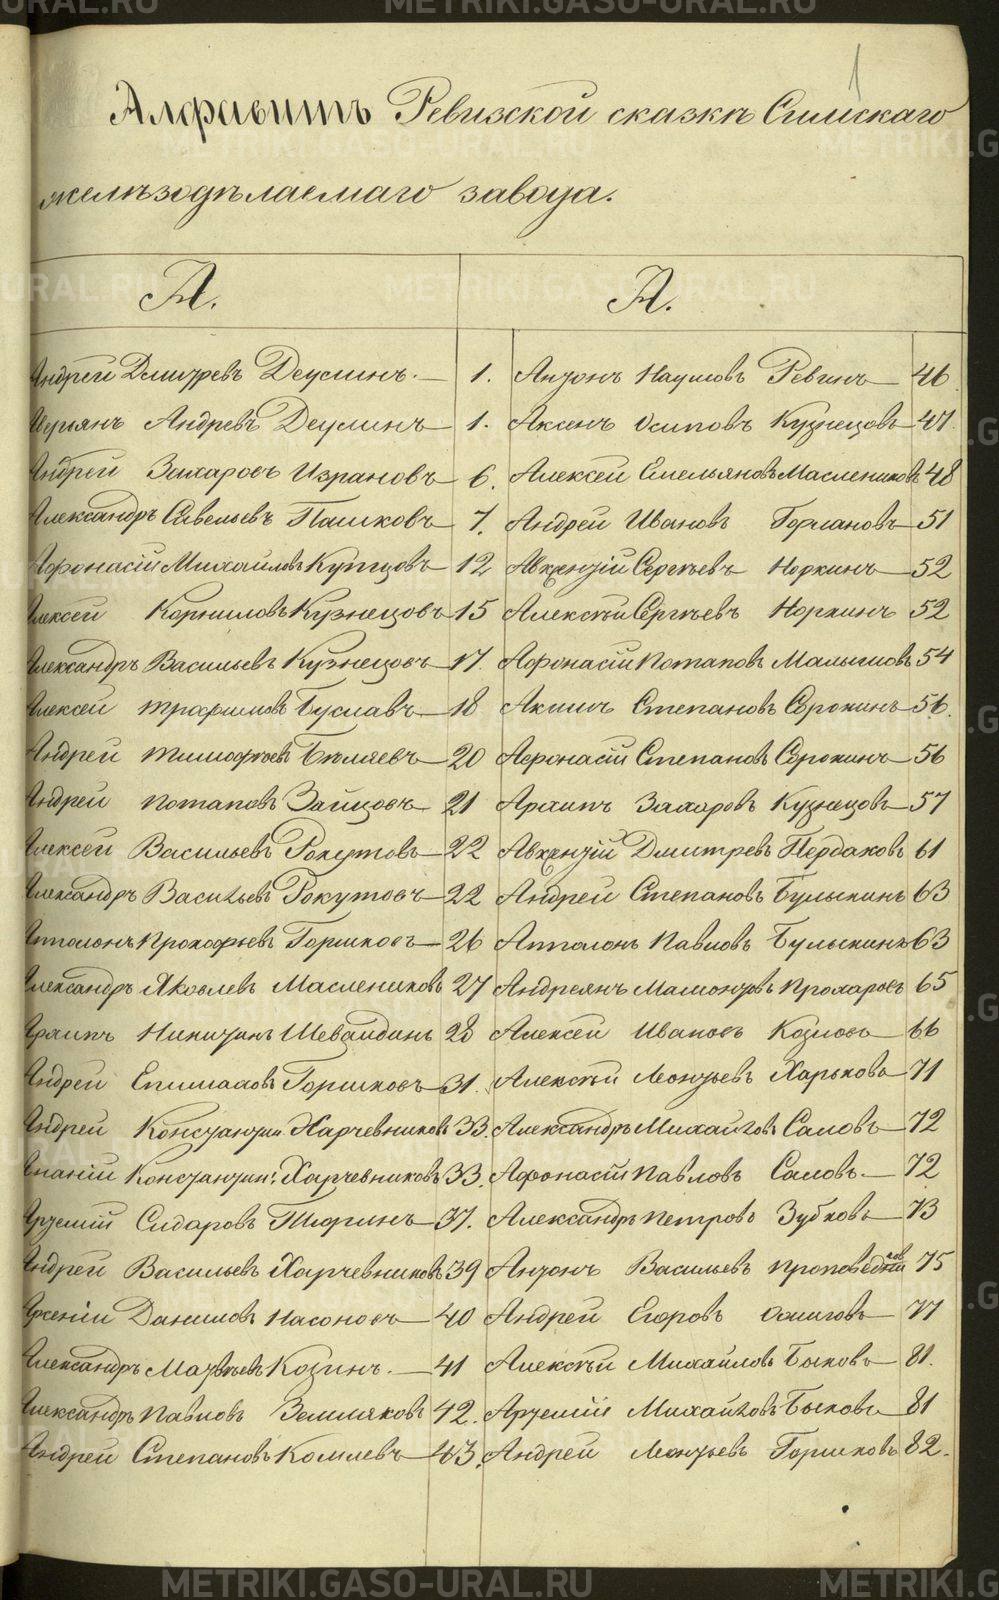 1
Алфавитъ Ревизской сказкѣ Симскаго
желѣзодѣлаемаго завода.
А.
А.
Андрей Дмитревъ Деулинъ. 1.
Аверьянъ Андревъ Деулинъ 1.
Андрей Захаровъ Израновъ 6.
Александръ Савельевъ Пашковъ 7.
Афонасій Михайловъ Купцовъ 12
Алексей Корниловъ Кузнецовъ 15
Александръ Васильевъ Кузнецовъ 17.
Алексей Трафимовъ Буславъ 18
Андрей Тимофѣевъ Бѣляевъ 20
Андрей Потаповъ Зайцовъ 21
Алексей Васильевъ Рокутовъ 22
Александръ Васильевъ Рокутовъ 22
Апполонъ Прокофьевъ Горшковъ 26
Александръ Яковлевъ Маслениковъ 27
Архипъ Никитинъ Шевалдинъ 28
Андрей Епимаховъ Горшковъ 31.
Андрей Констянтин Харчевниковъ 33.
Ананій Констянтин: Харчевниковъ 33.
Артемій Сидаровъ Тюринъ 37.
Андрей Васильевъ Харчевниковъ 39
Арсеній Даниловъ Насоновъ 40
Александръ Матвѣевъ Козинъ. 41
Александръ Павловъ Земляковъ 42.
Андрей Степановъ Комлевъ 43.
Антонъ Наумовъ Ревинъ 46
Аксенъ Осиповъ Кузнецовъ 47.
Алексей Емельяновъ Маслениковъ 48
Андрей Ивановъ Гормановъ 51
Авксентій Сергѣевъ Норкинъ 52
Алексѣй Сергѣевъ Норкинъ 52
Афонасій Потаповъ Малышовъ 54
Акимъ Степановъ Сорокинъ 56.
Афонасій Степановъ Сорокинъ 56
Архипъ Захаровъ Кузнецовъ 57
Авксентій Дмитревъ Пердаковъ 61
Андрей Степановъ Булыкинъ 63
Апполонъ Павловъ Булыкинъ 63
Андреянъ Мамонтовъ Прохаровъ 65
Алексей Ивановъ Козловъ 66
Алексѣй Леонтьевъ Харьковъ 71
Александръ Михайловъ Саловъ 72
Афонасій Павловъ Саловъ. 72
Александръ Петровъ Зубковъ 73
Антонъ Васильевъ 75
Андрей Егоровъ 77
Алексѣй Михайловъ Быковъ 81.
Артемій Михайловъ Быковъ 81
Андрей Леонтьевъ Горшковъ 82.
METRIKI.GASO-URAL.RU